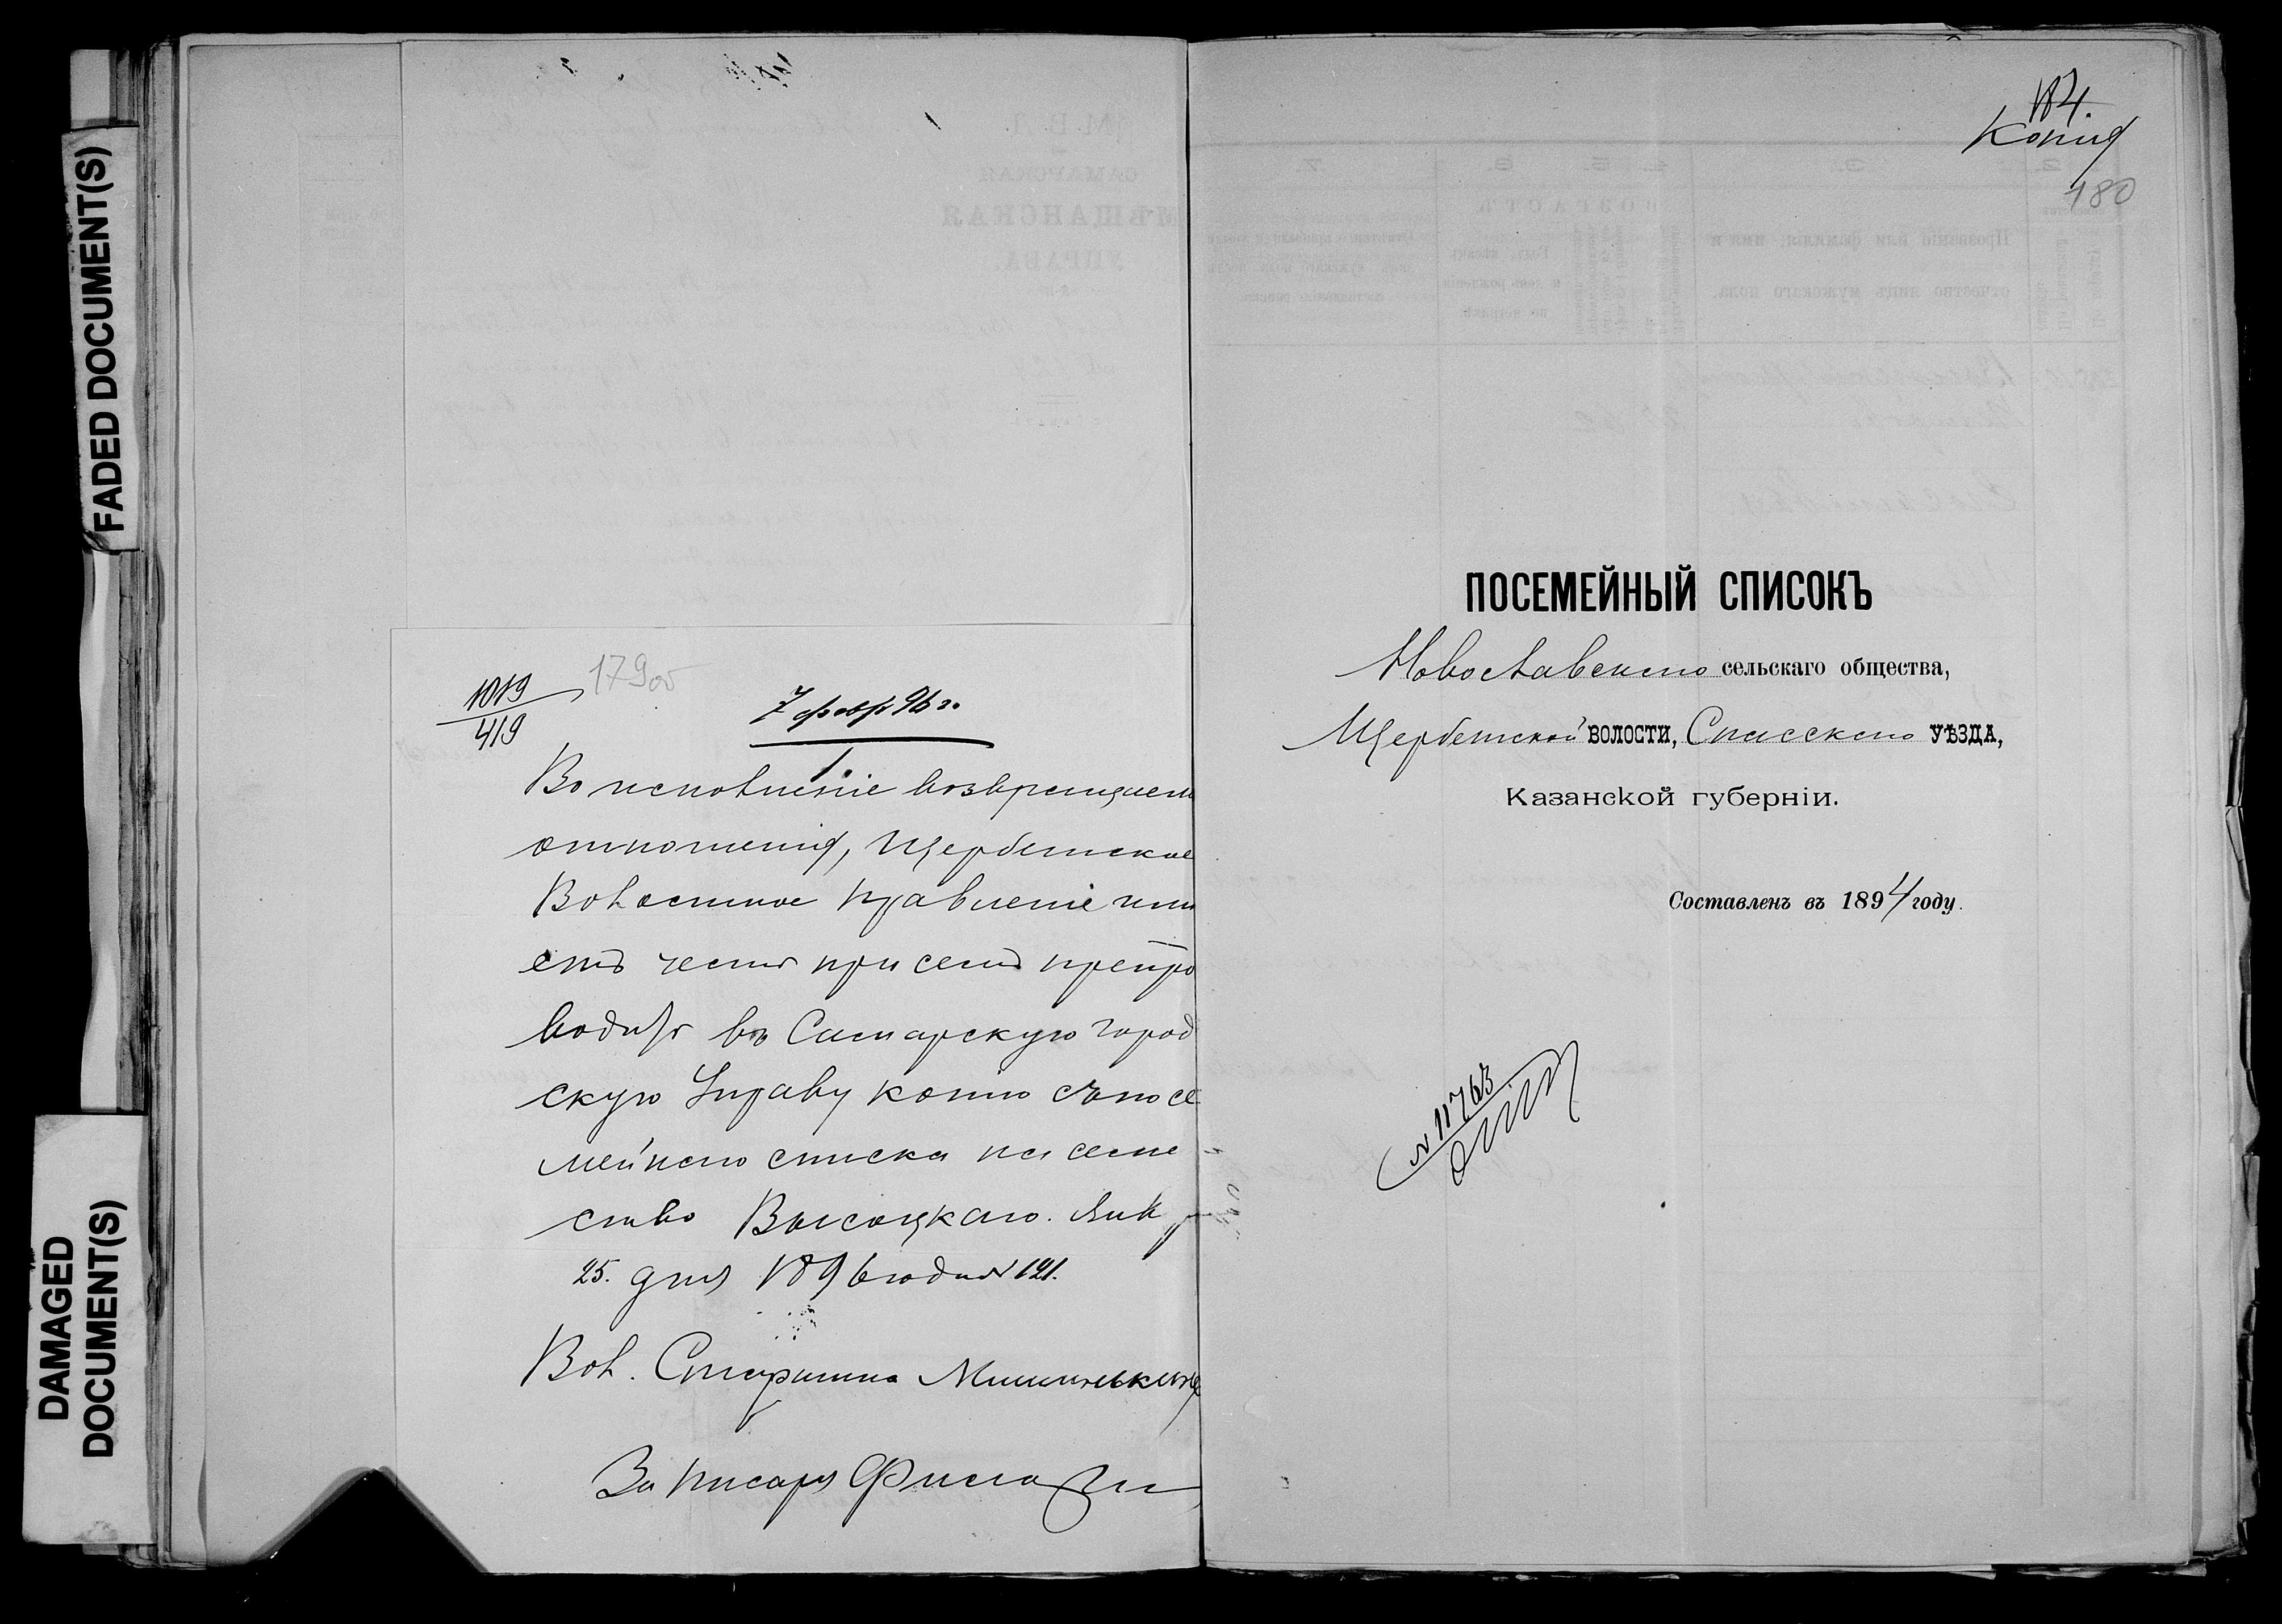 FADED DOCUMENT(S)
DAMAGED
DOCUMENT(S)
1019
419
179 об
7 февр 96 г.
Во исполненіе возвращаем
отношенія, Щербетское
Волостное правленіе имѣ
етъ честь при семъ препро
водить въ Самарскую город
скую Управу копію съ посе
мейнаго списка на семе
ство Высоцкаго. Янв
25. дня 1896 года № 121.
Вол. Старшина
За писаря
184.
Копія
180
ПОСЕМЕЙНЫЙ СПИСОКЪ
Новославскаго сельскаго общества,
Щербетской ВОЛОСТИ, Спасскаго УѢЗДА,
Казанской губерніи.
Составленъ въ 1894 году.
№ 11763